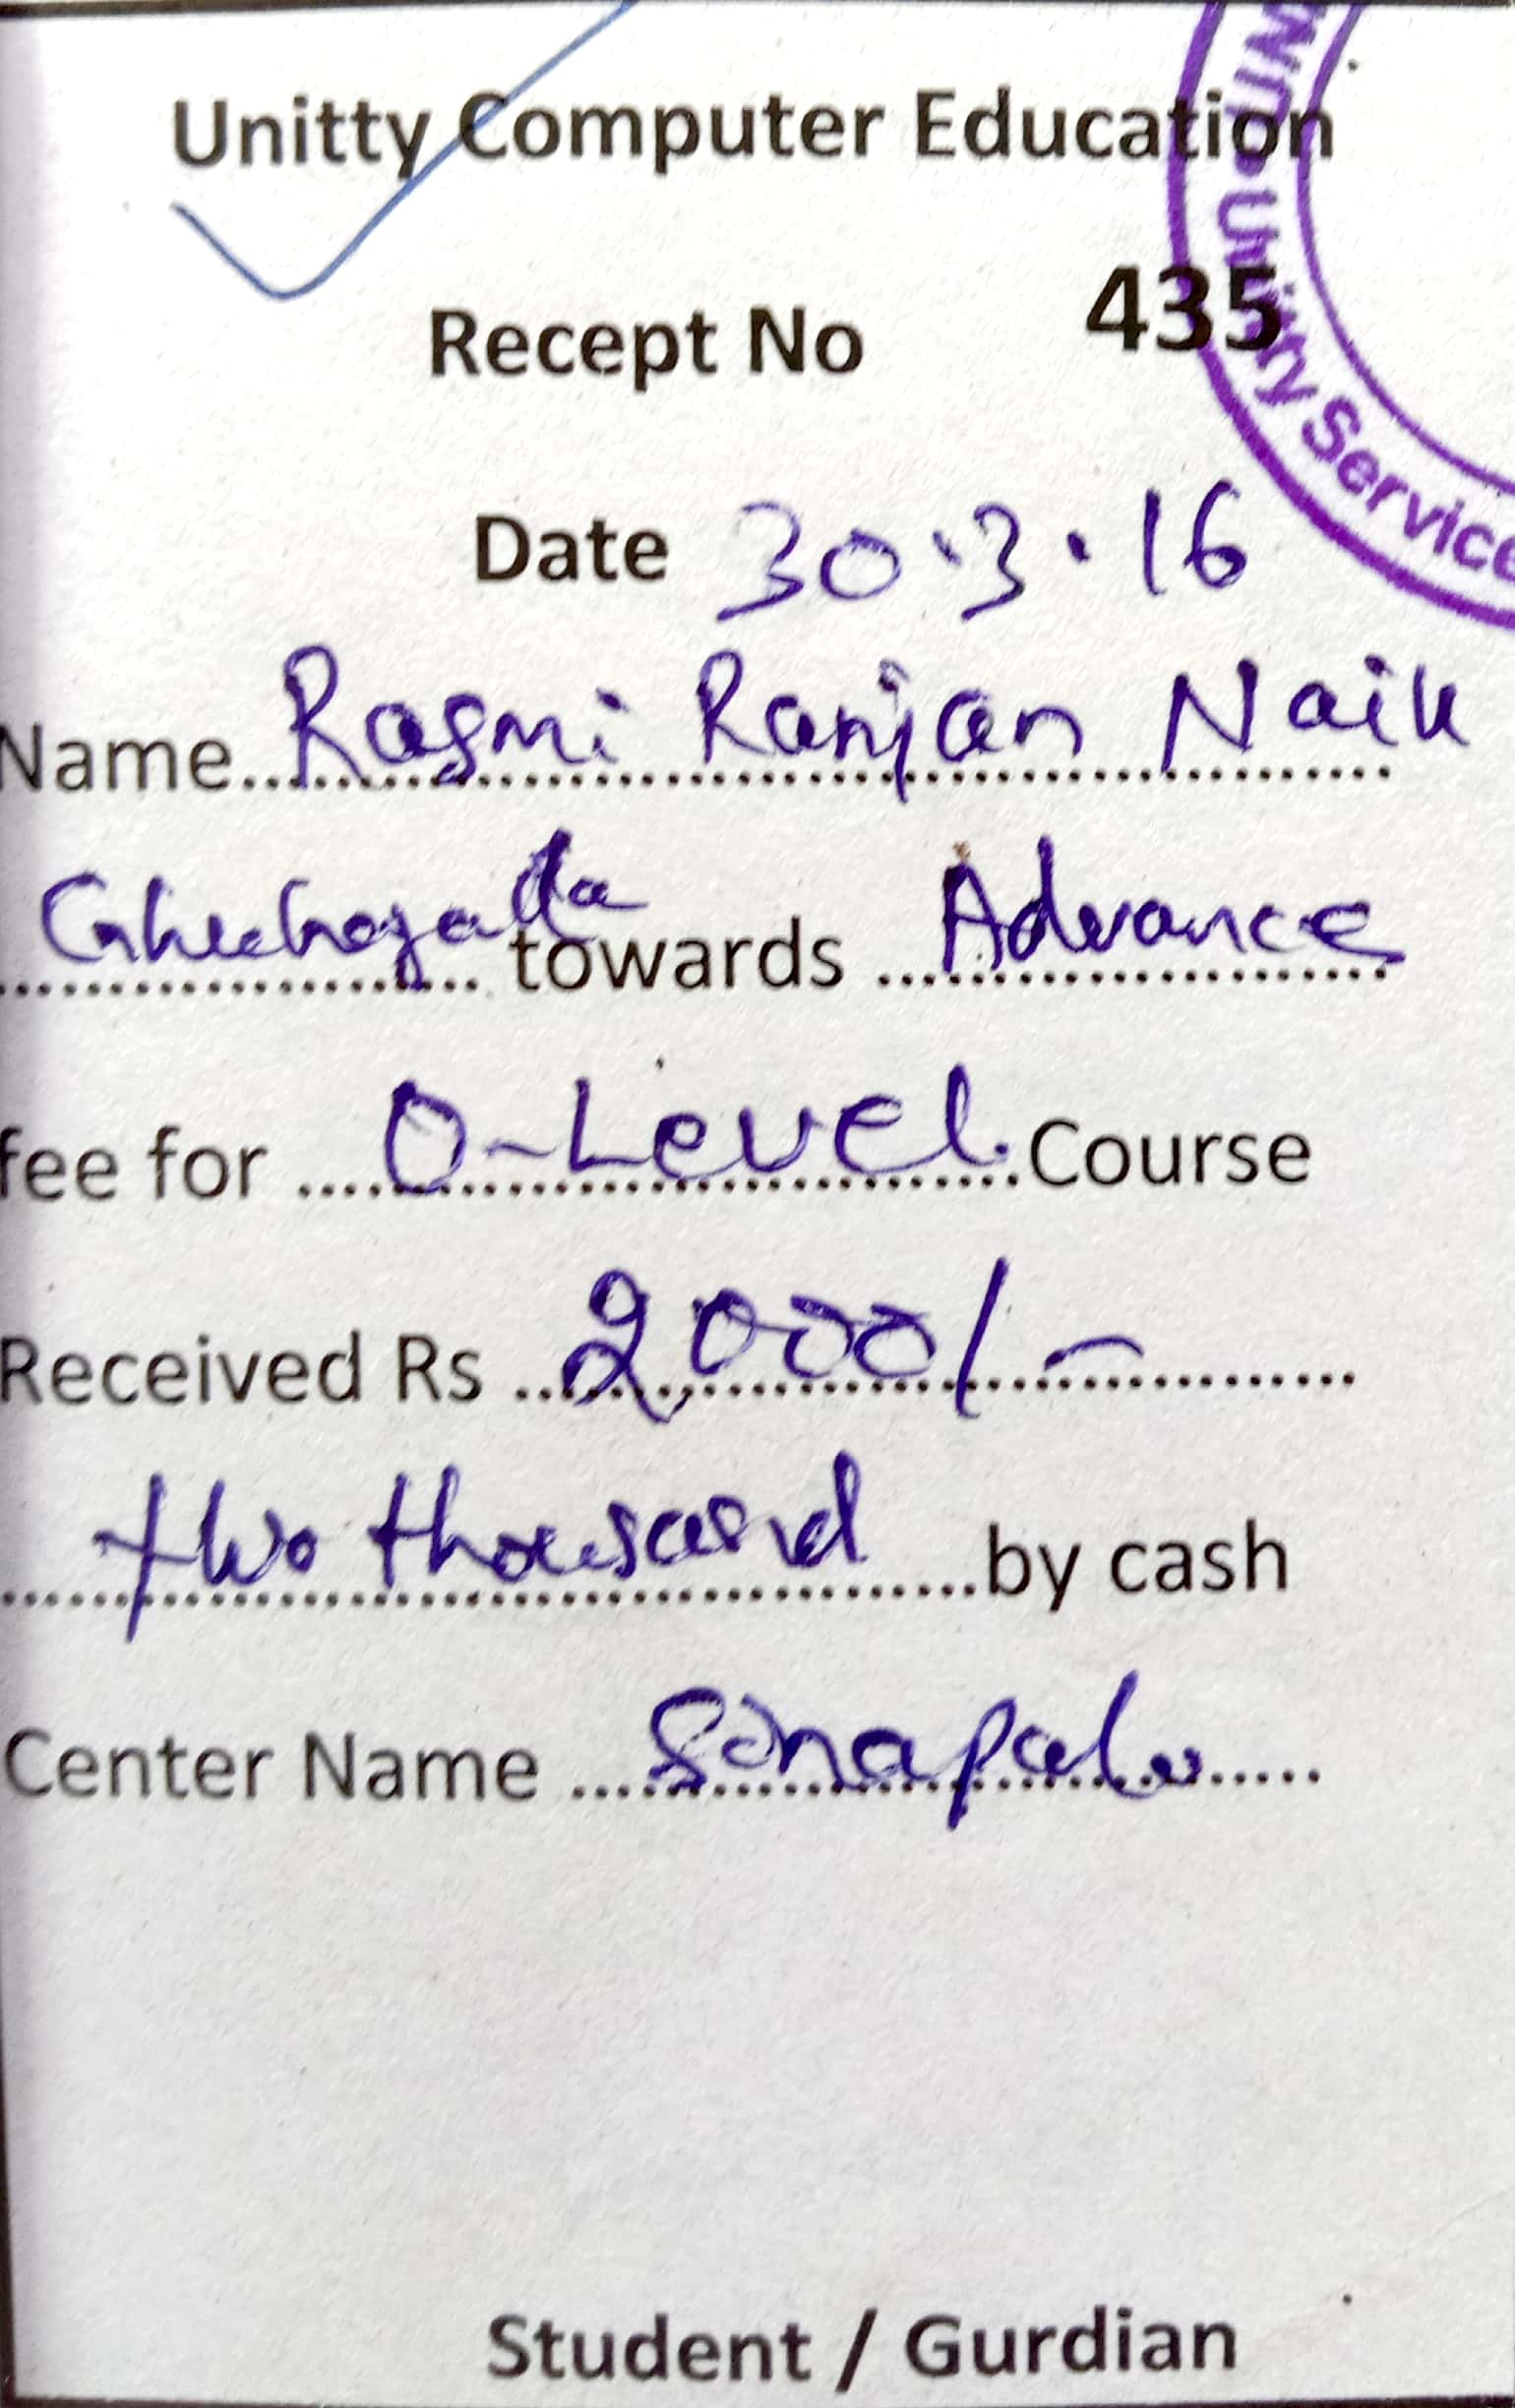 Unitty Computer Education
Recept No 435
Date 30.3.16
Name Rasmi Ranjan Naik
towards Advance
fee for O-Level Course
Received Rs 2000/-
two thousand by cash
Center Name Sinapali
Student / Gurdian
Service